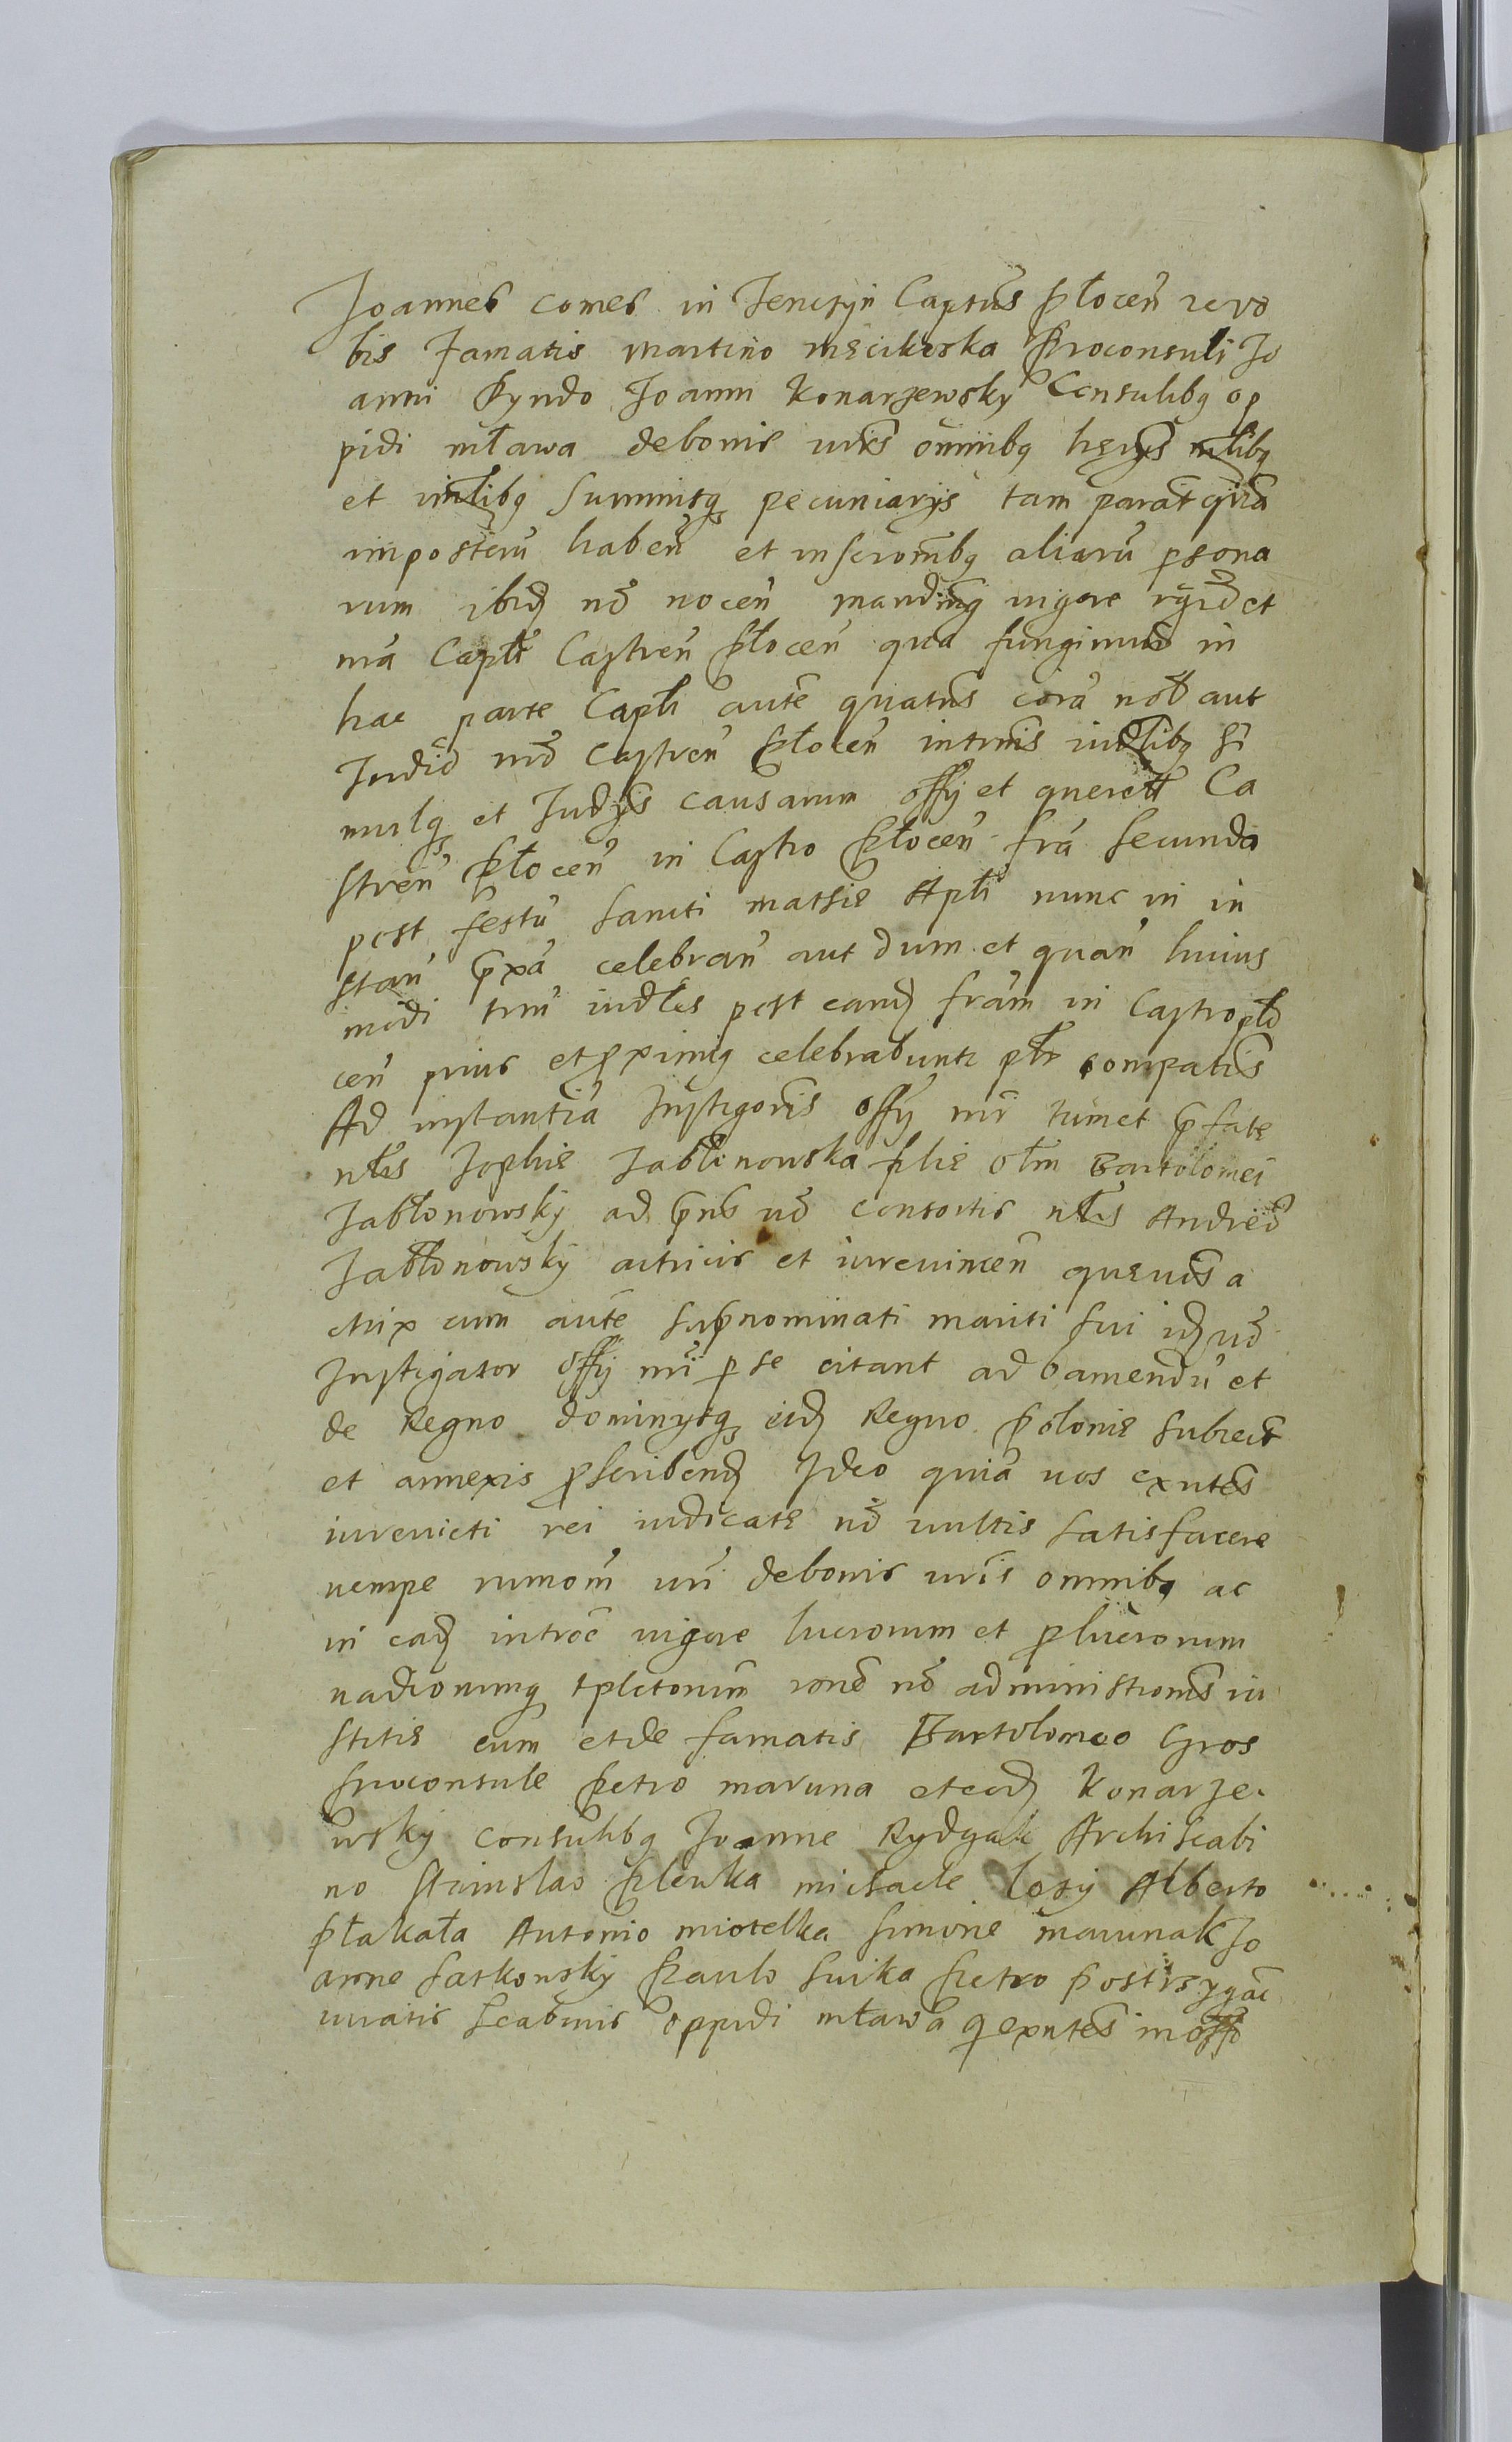 Joannes comes in Tenczyn Captũs płoceñ etc vo
bis famatis Martino męcikoska Proconsuli Jo
anni Pyndo Joanni Konarzewsky Consulibq op
pidi mława de bonis vr̃is omnibq hęr̃ys mlibq
et imlibq summisqȝ pecuniarys tam parat̃ qũa
imposterũ habeñ et inscrom̃bq aliarũ psona
rum ibid nõ noceñ mandamq vigore et
nr̃a Capłi Castreñ płoceñ qua fungimur in
hac parte Capłi autẽ quatũs corã nob̃ aut
Judiõ nr̃o Castreñ płoceñ in tr̃mis iudlibq si
mulqȝ et Judys causarum offy et querełł Ca
streñ płoceñ in Castro płoceñ fr̃a secunda
post festũ sancti mathię Apłi nunc in in
stañ pxã celebrañ aut dum et quañ huius
modi tr̃mi iudłes post eand fr̃am in Castro płõ
ceñ prius et pximiq celebrabuntr płr compatis
Ad instantiã Instigoris offy nr̃i tum et p̃fatę
nłis Zophię Jabłonowska filię olm Bartolomei
Jabłonowsky ad p̃ns võ consortis nłis Andreę
Jabłonowsky actricis et iurevinceñ quęvis a
ctrix cum autẽ sup̃nominati mariti sui id võ
Instigator offy nr̃i p se citant ad baniendũ et
de Regno dominysqȝ eid Regno Polonię subiect̃
et annexis pscribend Ideo quia vos exñtes
iurevicti rei iudicatę nõ vultis satisfacere
nempe rumom̃ vr̃i de bonis vr̃is omnibq ac
in ead introẽ vigore lucrorum et plucrorum
vadionumq tpletorum rone nõ administromis iu
stitię cum et de famatis Bartolomeo Gros
proconsule Petro maruna et eod Konarze
wsky consulibq Joanne Rydzak Archiscabi
no Stanislao Plewka michaele Cozy Alberto
płakała Antonio miotelka Simone marunak Jo
anne Satkowsky Paulo Suika Petro
iuratis Scabinis oppidi mława q exñtes in offõ